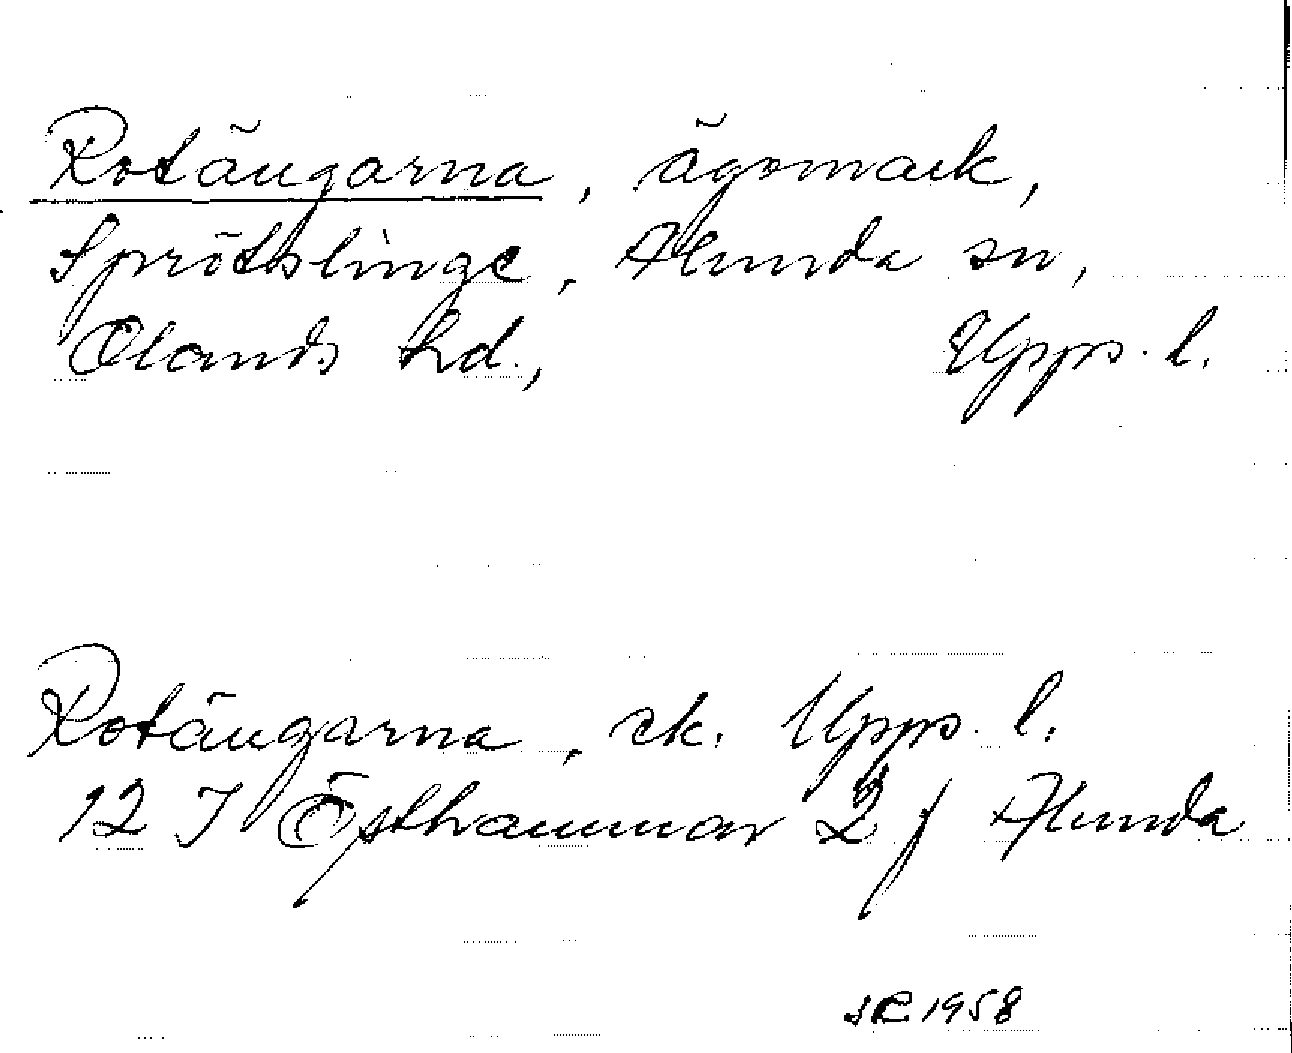 Rotängarna, ägomark,
Sprötslinge, Alunda sn,
Olands hd., Upps. l.
Rotängarna, ek. Upps. l.
12 I Östhammar 2 f Alunda
SR 1958